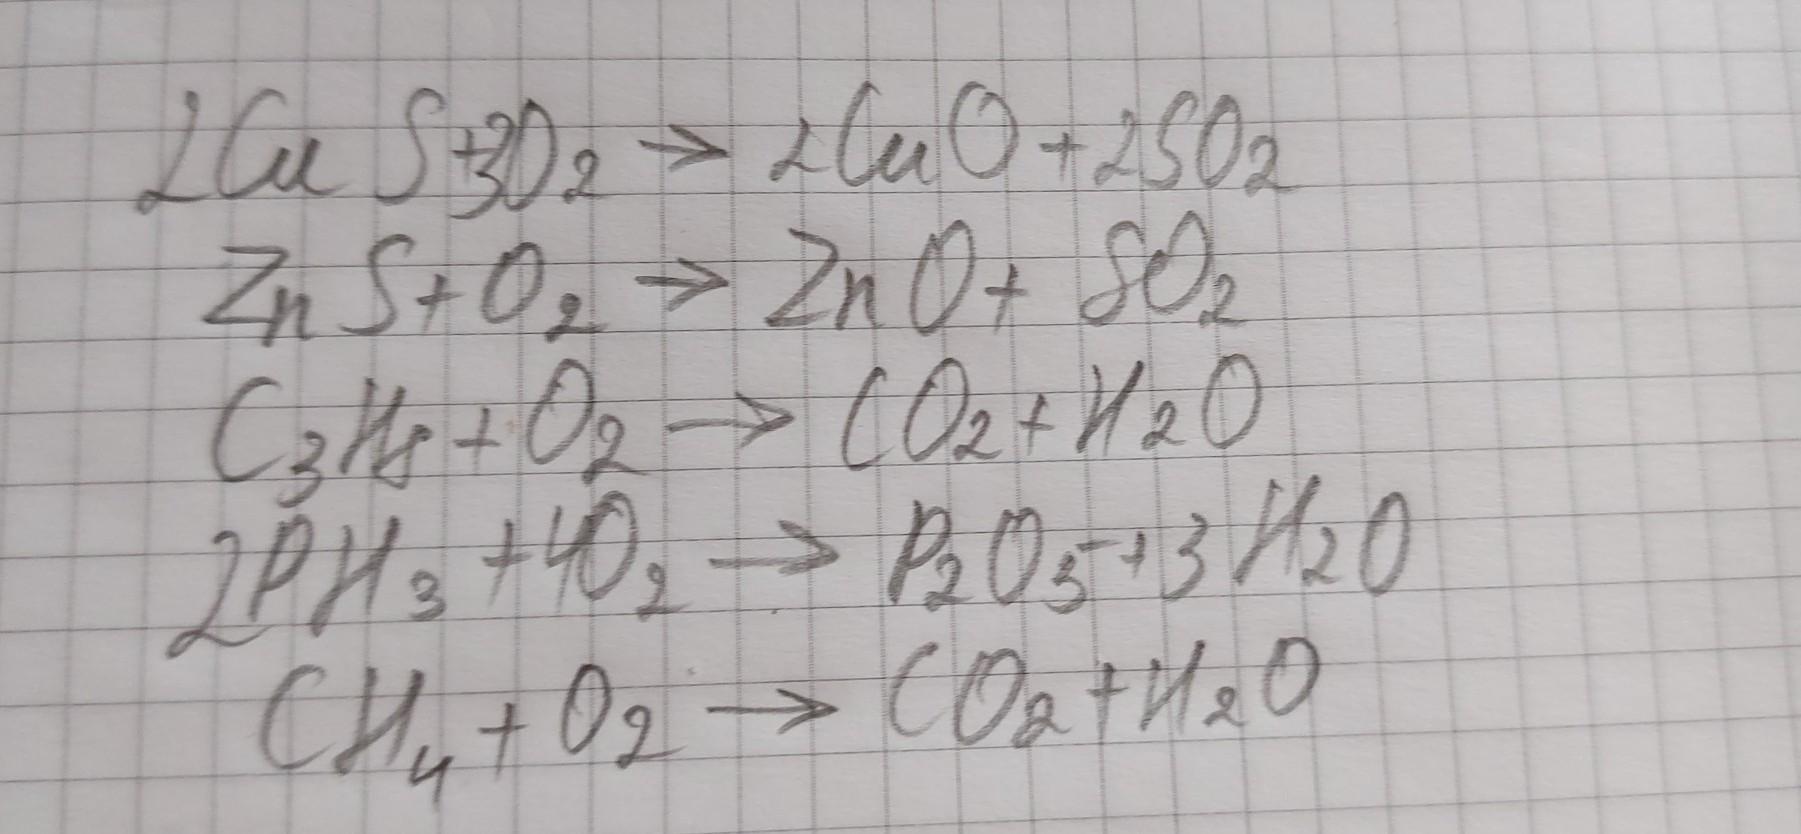 2CuS+3O₂ → 2CuO+2SO₂
ZnS+O₂ → ZnO+ SO₂
C₃H₈+O₂ → CO₂+H₂O
2PH₃+4O₂ → P₂O₅+3H₂O
CH₄+O₂ → CO₂+H₂O